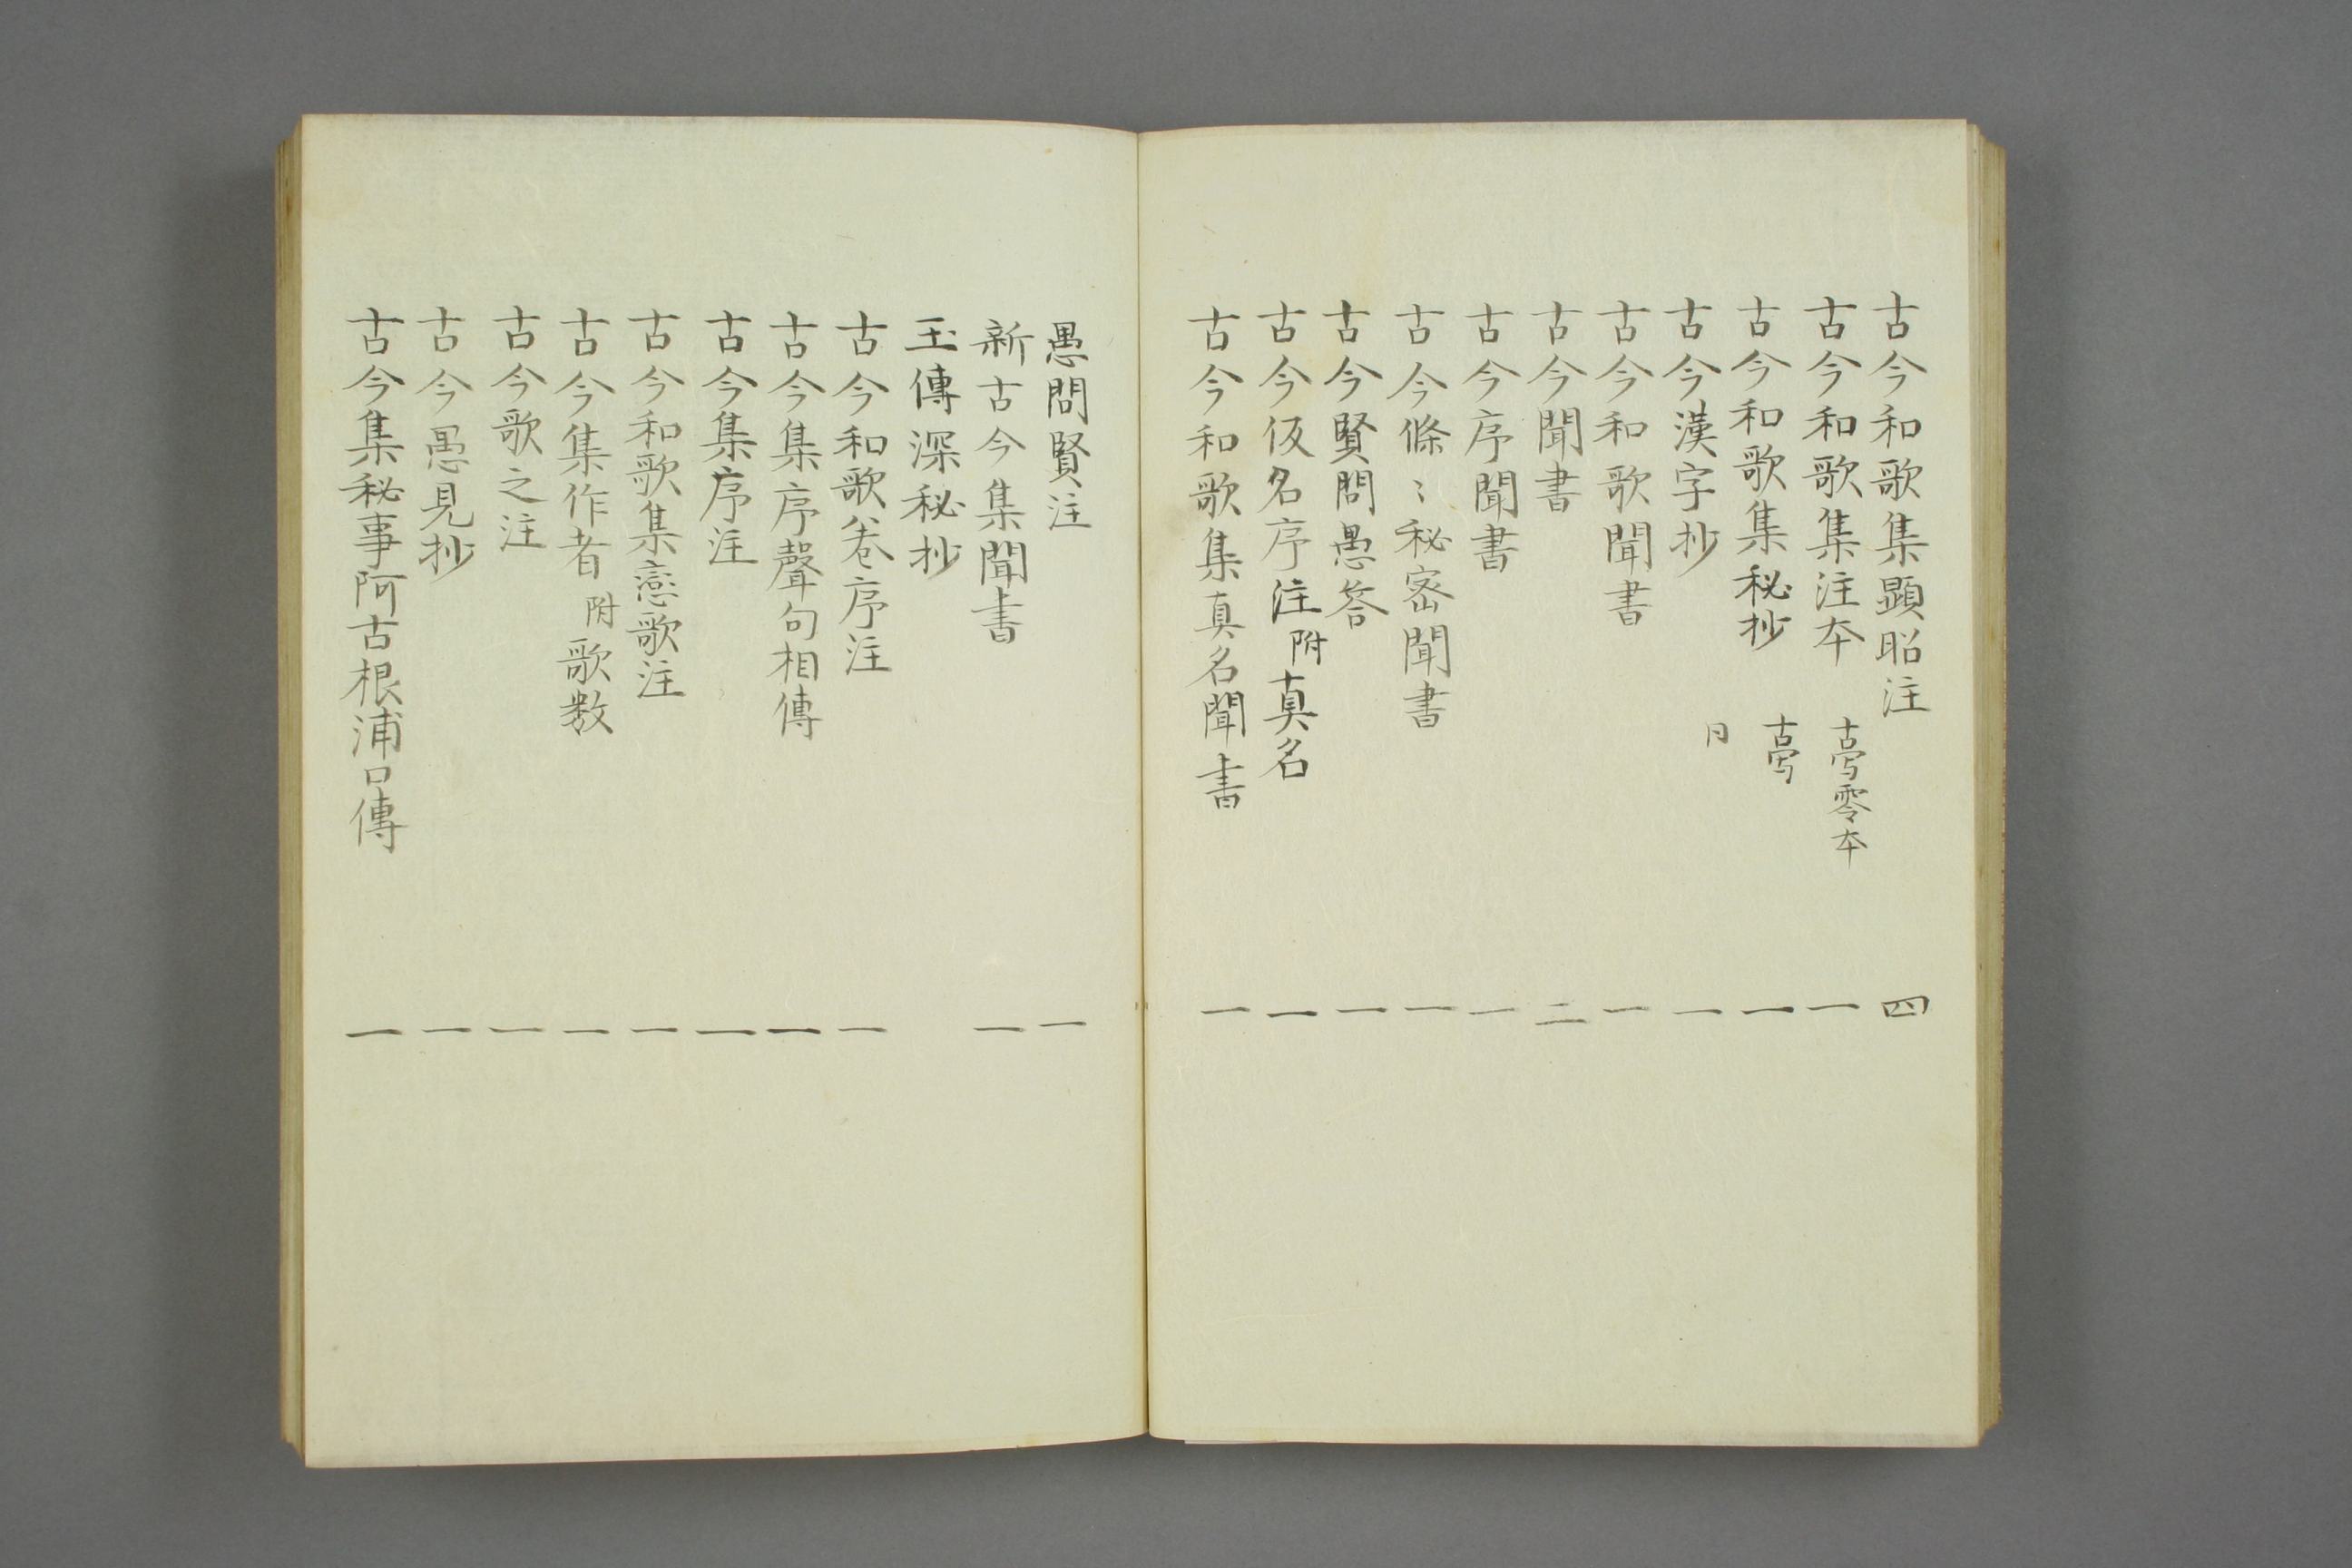 古今和歌集顕昭注 四
古今和歌集注本 古寫零本 一
古今和歌集秘抄 古寫 一
古今漢字抄 同 一
古今和歌聞書 一
古今聞書 二
古今序聞書 一
古今條〻秘密聞書 一
古今賢問愚答 一
古今仮名序注 附真名 一
古今和歌集真名聞書 一
愚問賢注 一
新古今集聞書 一
玉傳深秘抄
古今和歌卷序注 一
古今集序聲句相傳 一
古今集序注 一
古今和歌集戀歌注 一
古今集作者 附歌数 一
古今歌之注 一
古今愚見抄 一
古今集秘事阿古根浦口傳 一